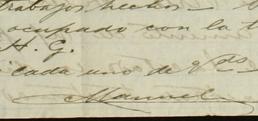 trabajos hechos
ocupado con la t
H. G.
cada uno de Vds
Manuel